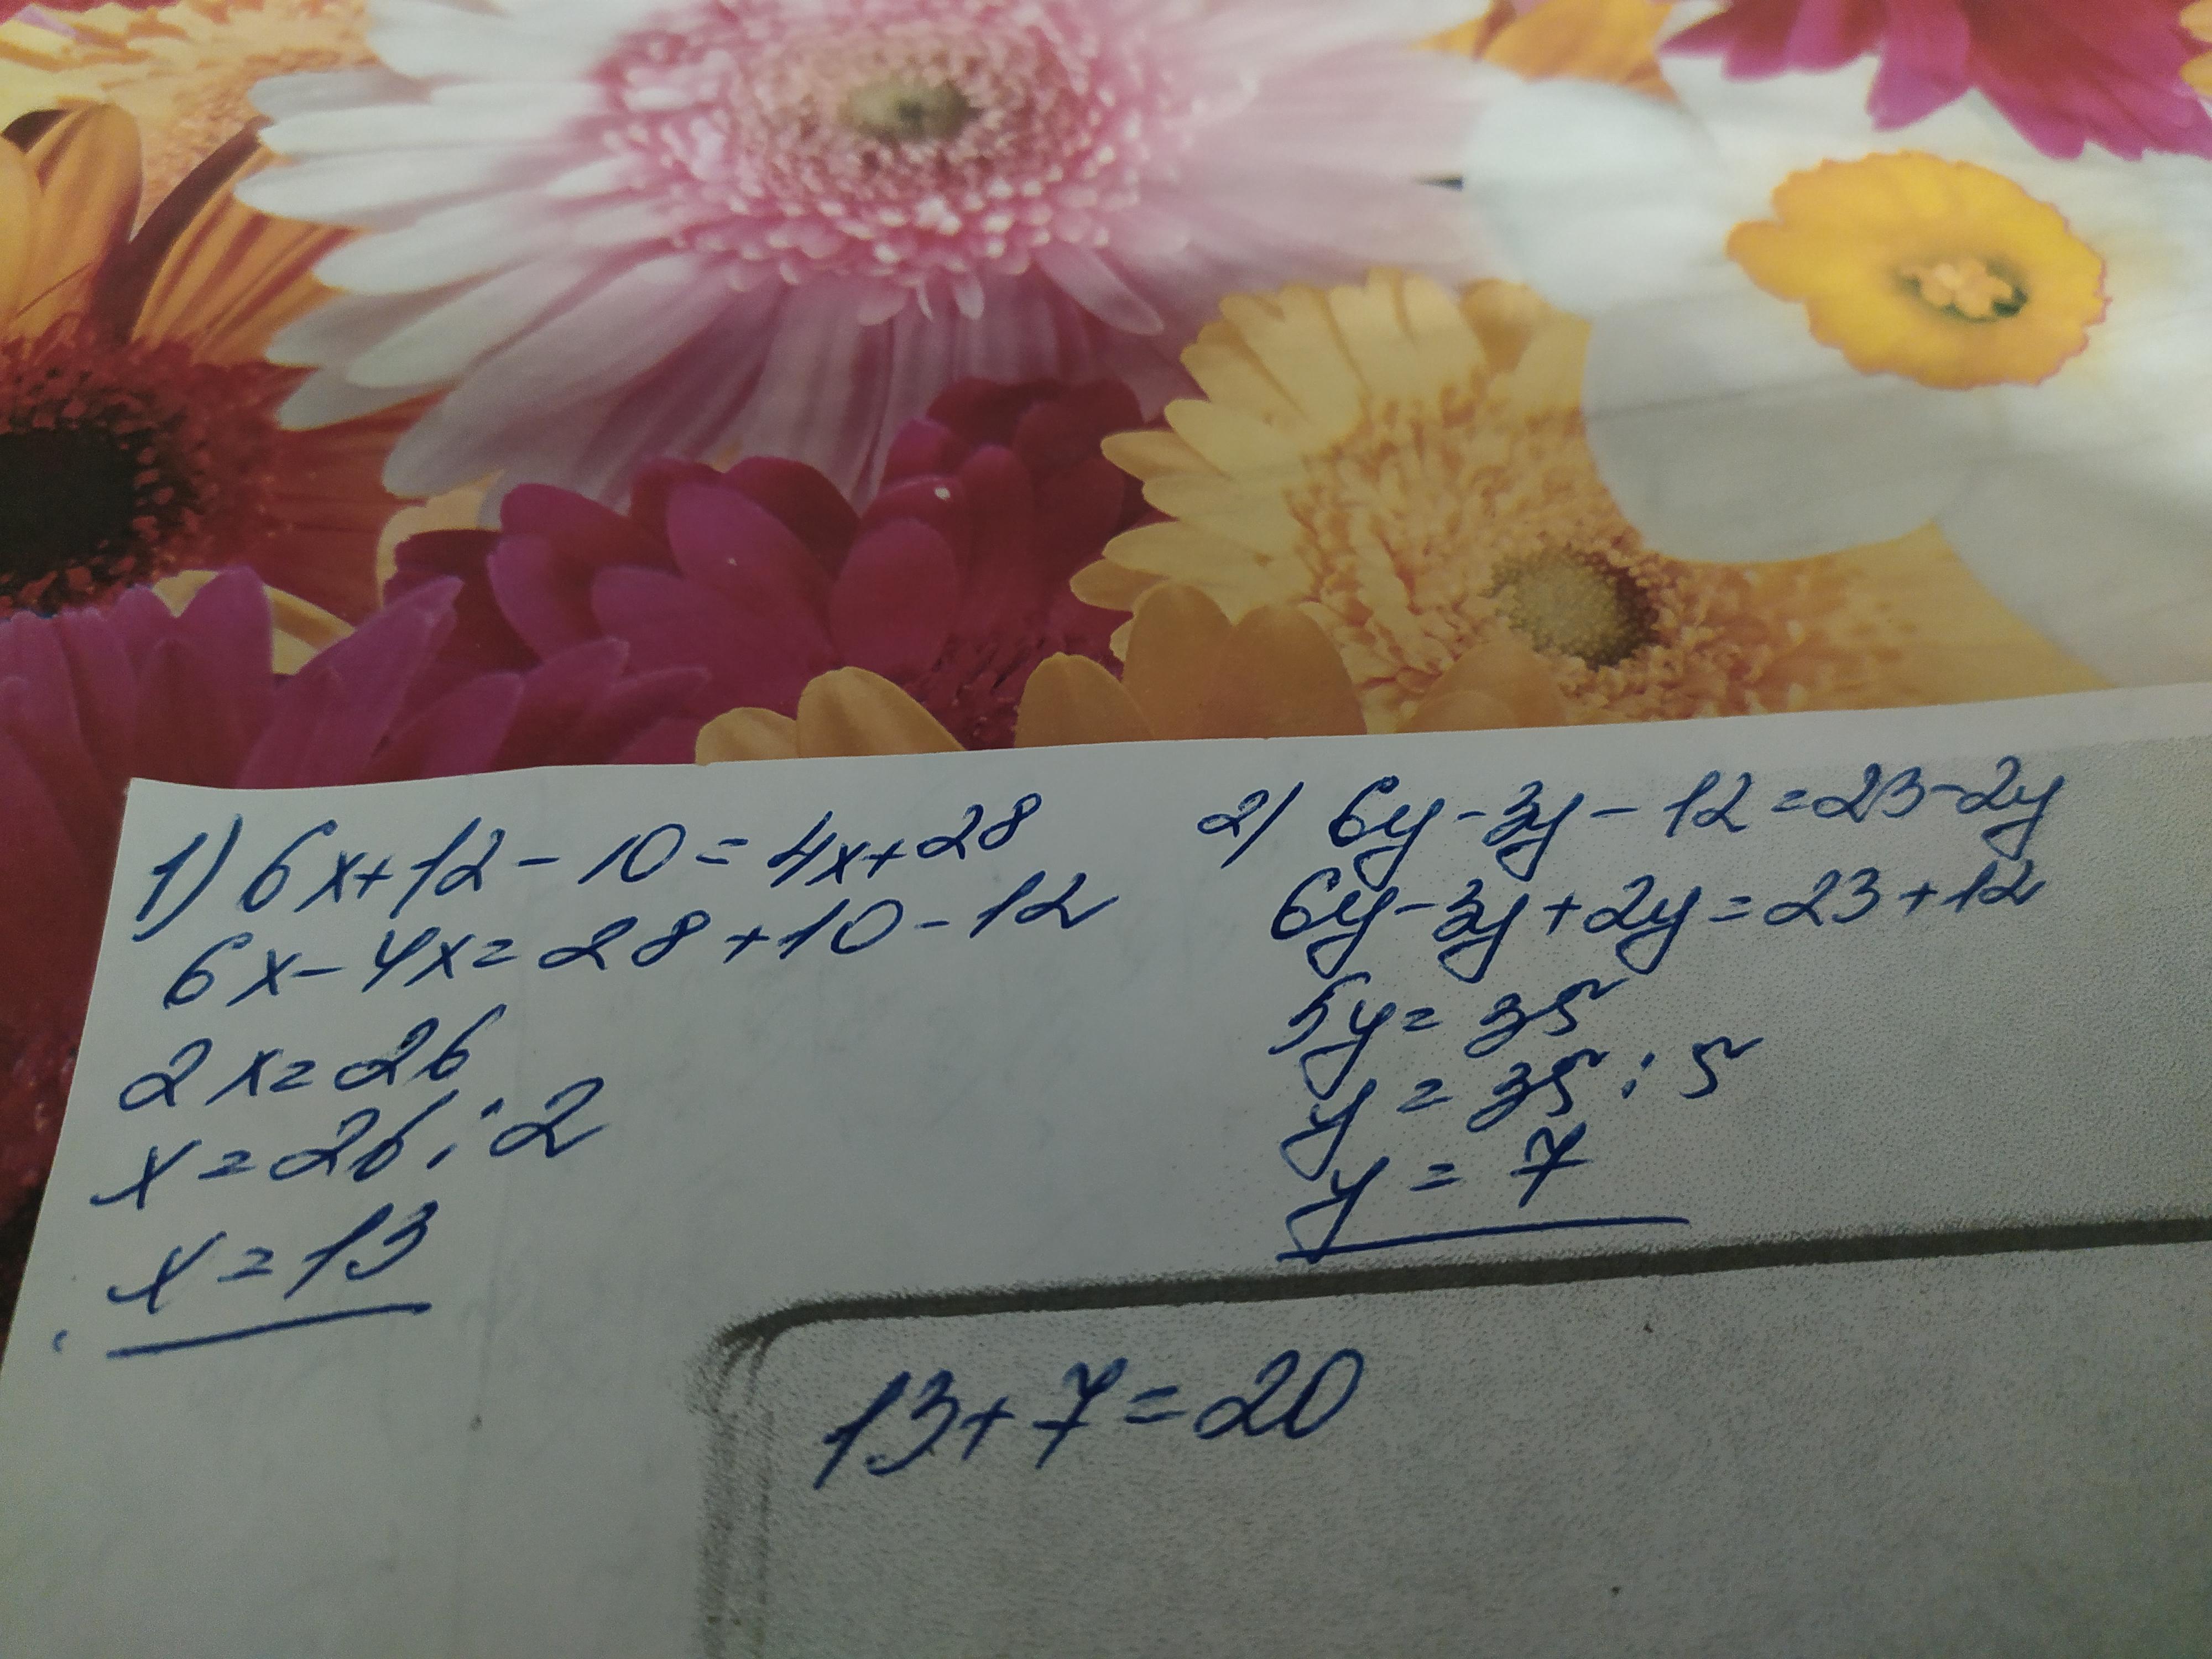 1) 6x+12-10=4x+28
6x-4x=28+10-12
2x=26
x=26:2
x=13
2) 6y-3y-12=23-2y
6y-3y+2y=23+12
5y=35
y=35:5
y=7
13+7=20